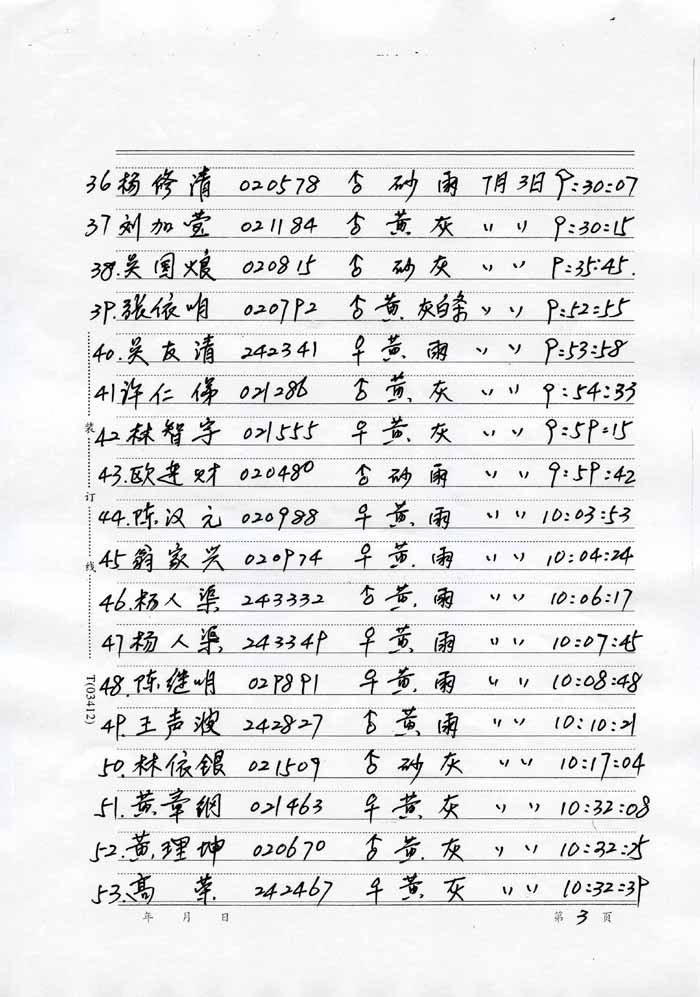 36 杨修清 020578 ♂ 砂 雨 7月3日 9:30:07
37 刘加萱 021184 ♂ 黄 灰 〃 〃 9:30:15
38.吴国娘 020815 ♂ 砂 灰 〃 〃 9:35:45.
39.张依明 020792 ♂ 黄. 灰白条 〃 〃 9:52:55
40.吴友清 242341 ♀ 黄. 雨 〃 〃 9:53:58
41 许仁俤 021286 ♂ 黄 灰 〃 〃 9:54:33
装
42.林智宇 021555 ♀ 黄. 灰 〃 〃 9:59:15
43.欧建财 020480 ♂ 砂 雨 〃 〃 9:59:42
订
44.陈汉元 020988 ♀ 黄. 雨 〃 〃 10:03:53
45 翁家兴 020974 ♀ 黄. 雨 〃 〃 10:04:24
线
46.杨人渠 243332 ♂ 黄. 雨 〃 〃 10:06:17
47 杨人渠 243349 ♀ 黄 雨 〃 〃 10:07:45
48.陈继明 029891 ♀ 黄. 雨 〃 〃 10:08:48
T(03412)
49.王声波 242827 ♂ 黄 雨 〃 〃 10:10:21
50.林依银 021509 ♂ 砂 灰 〃 〃 10:17:04
51.黄章纲 021463 ♀ 黄 灰 〃 〃 10:32:08
52.黄理坤 020670 ♂ 黄. 灰 〃 〃 10:32:25
53.高荣 242467 ♀ 黄 灰 〃 〃 10:32:39
年 月 日 第 3 页